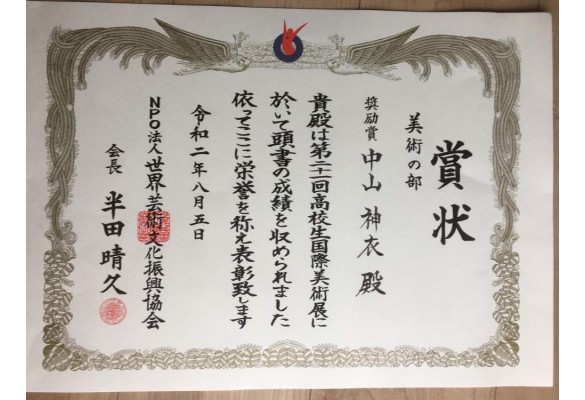 賞状
美術の部
奨励賞 中山 神衣 殿
貴殿は第二十一回高校生国際美術展に
於いて頭書の成績を収められました
依ってここに栄誉を称え表彰致します
令和二年八月五日
NPO法人 世界芸術文化振興協会
会長 半田晴久